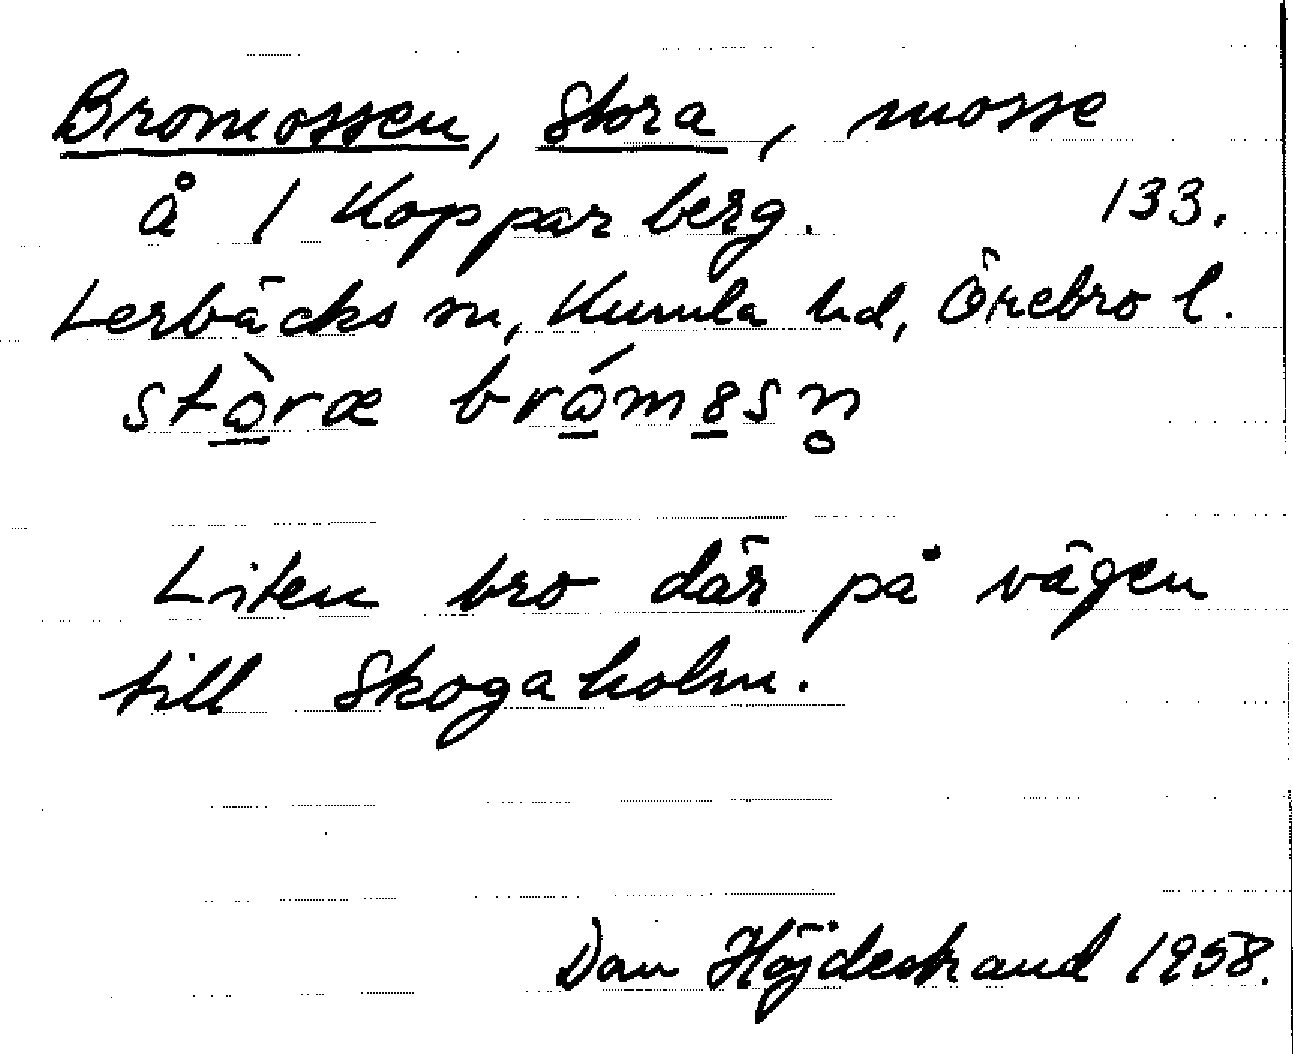 Bromossen, Stora, mosse
å 1 Kopparberg. 133.
Lerbäcks sn, Kumla hd, Örebro l.
stò̱ræ bró̱m8̱sn̥
Liten bro där på vägen
till Skogaholm.
Dan Höjdestrand 1958.